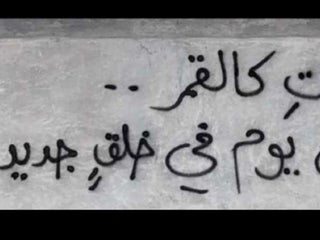 تِ كالقمر ..
يوم في خلقٍ جديد